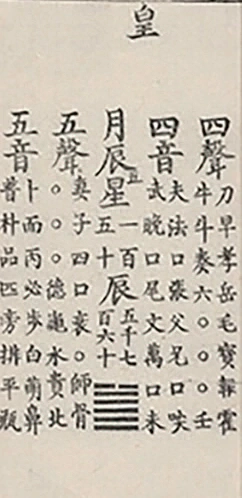 皇
四聲
刀早孝岳毛寶報霍
牛斗奏六○○○
四音
夫法口張父兄口吠
武晚口尾文萬口未
月辰星五
一百
五十
辰
五千七
百六十
五聲
妻子四口衰○師骨
○○○德龜水貴北
五音
卜面丙必步白萌鼻
普朴品匹旁排平瓶